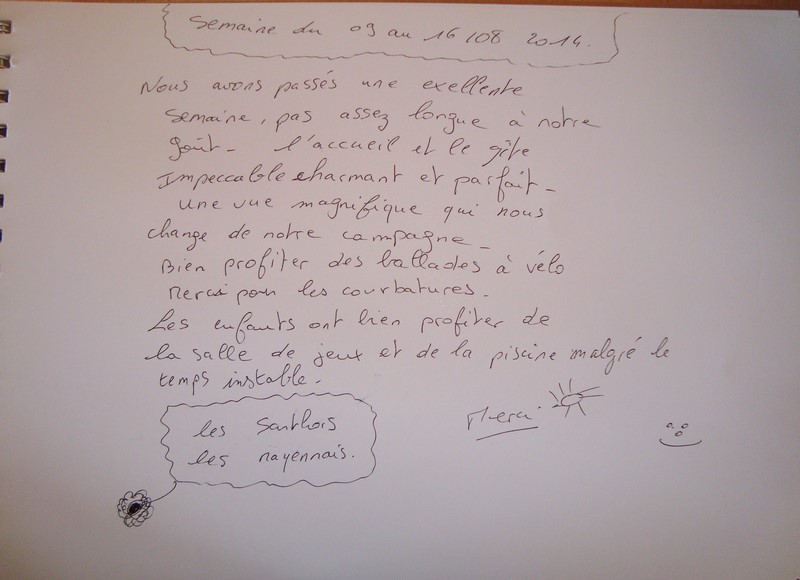 Semaine du 09 au 16/08 2014.
Nous avons passés une exellente
semaine, pas assez longue à notre
goût - l'accueil et le gîte
Impeccable charmant et parfait -
une vue magnifique qui nous
change de notre campagne -
Bien profiter des ballades à vélo
Merci pour les courbatures.
Les enfants ont bien profiter de
la salle de jeux et de la piscine malgré le
temps instable.
Merci
les Sarthois
les Mayennais.